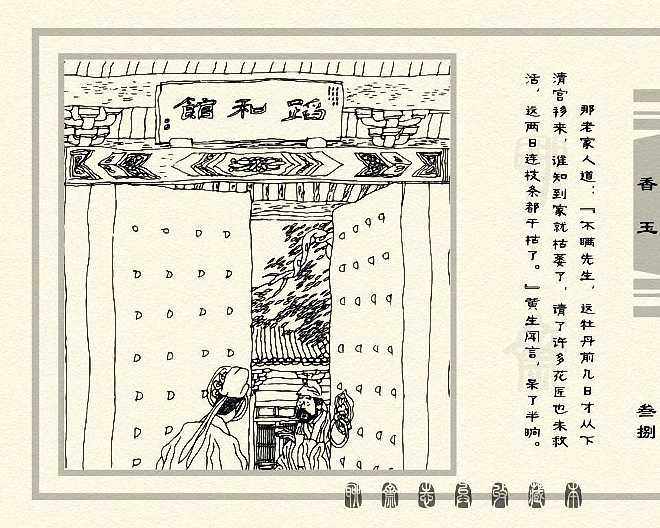 香玉
叁捌
那老家人道：『不瞒先生，这牡丹前几日才从下
清宫移来，谁知到家就枯萎了，请了许多花匠也未救
活，这两日连枝条都干枯了。』黄生闻言，呆了半晌。
蹈和館
聊齋志異收藏本